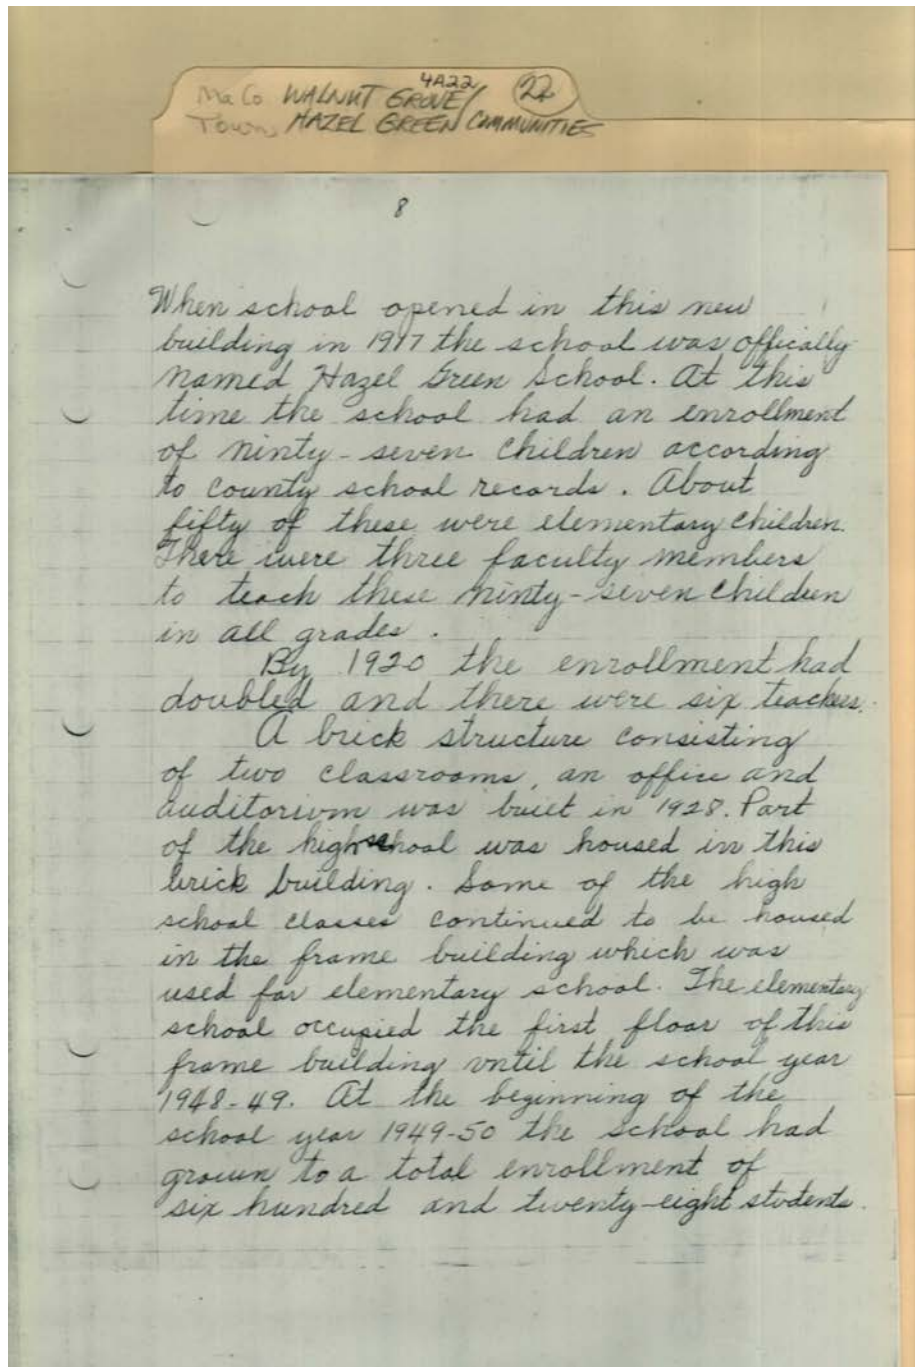 4A22
Ma Co WALNUT GROVE/ 22
Town HAZEL GREEN COMMUNITIES
8
When school opened in this new
building in 1917 the school was offically
named Hazel Green School. At this
time the school had an enrollment
of ninty-seven children according
to county school records. About
fifty of these were elementary children.
There were three faculty members
to teach these ninty-seven children
in all grades.
By 1920 the enrollment had
doubled and there were six teachers.
A brick structure consisting
of two classrooms, an office and
auditorium was built in 1928. Part
of the high school was housed in this
brick building. Some of the high
school classes continued to be housed
in the frame building which was
used for elementary school. The elementary
school occupied the first floor of this
frame building until the school year
1948-49. At the beginning of the
school year 1949-50 the school had
grown to a total enrollment of
six hundred and twenty-eight students.